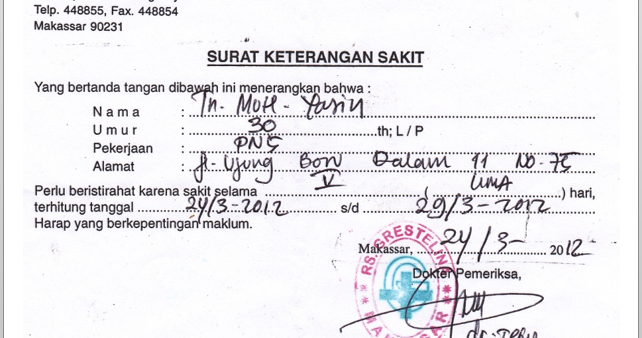 Telp. 448855, Fax. 448854
Makassar 90231
SURAT KETERANGAN SAKIT
Yang bertanda tangan dibawah ini menerangkan bahwa :
Nama : Tn. Muh. Yasin
Umur : 30 th; L / P
Pekerjaan : PNS
Alamat : Jl. Ujung Bori Dalam 11 NO. 75
Perlu beristirahat karena sakit selama V ( LIMA ) hari,
terhitung tanggal 24/3-2012 s/d 29/3-2012
Harap yang berkepentingan maklum.
Makassar, 24/3- 2012
Dokter Pemeriksa,
RS. GRESTELINA
MAKASSAR